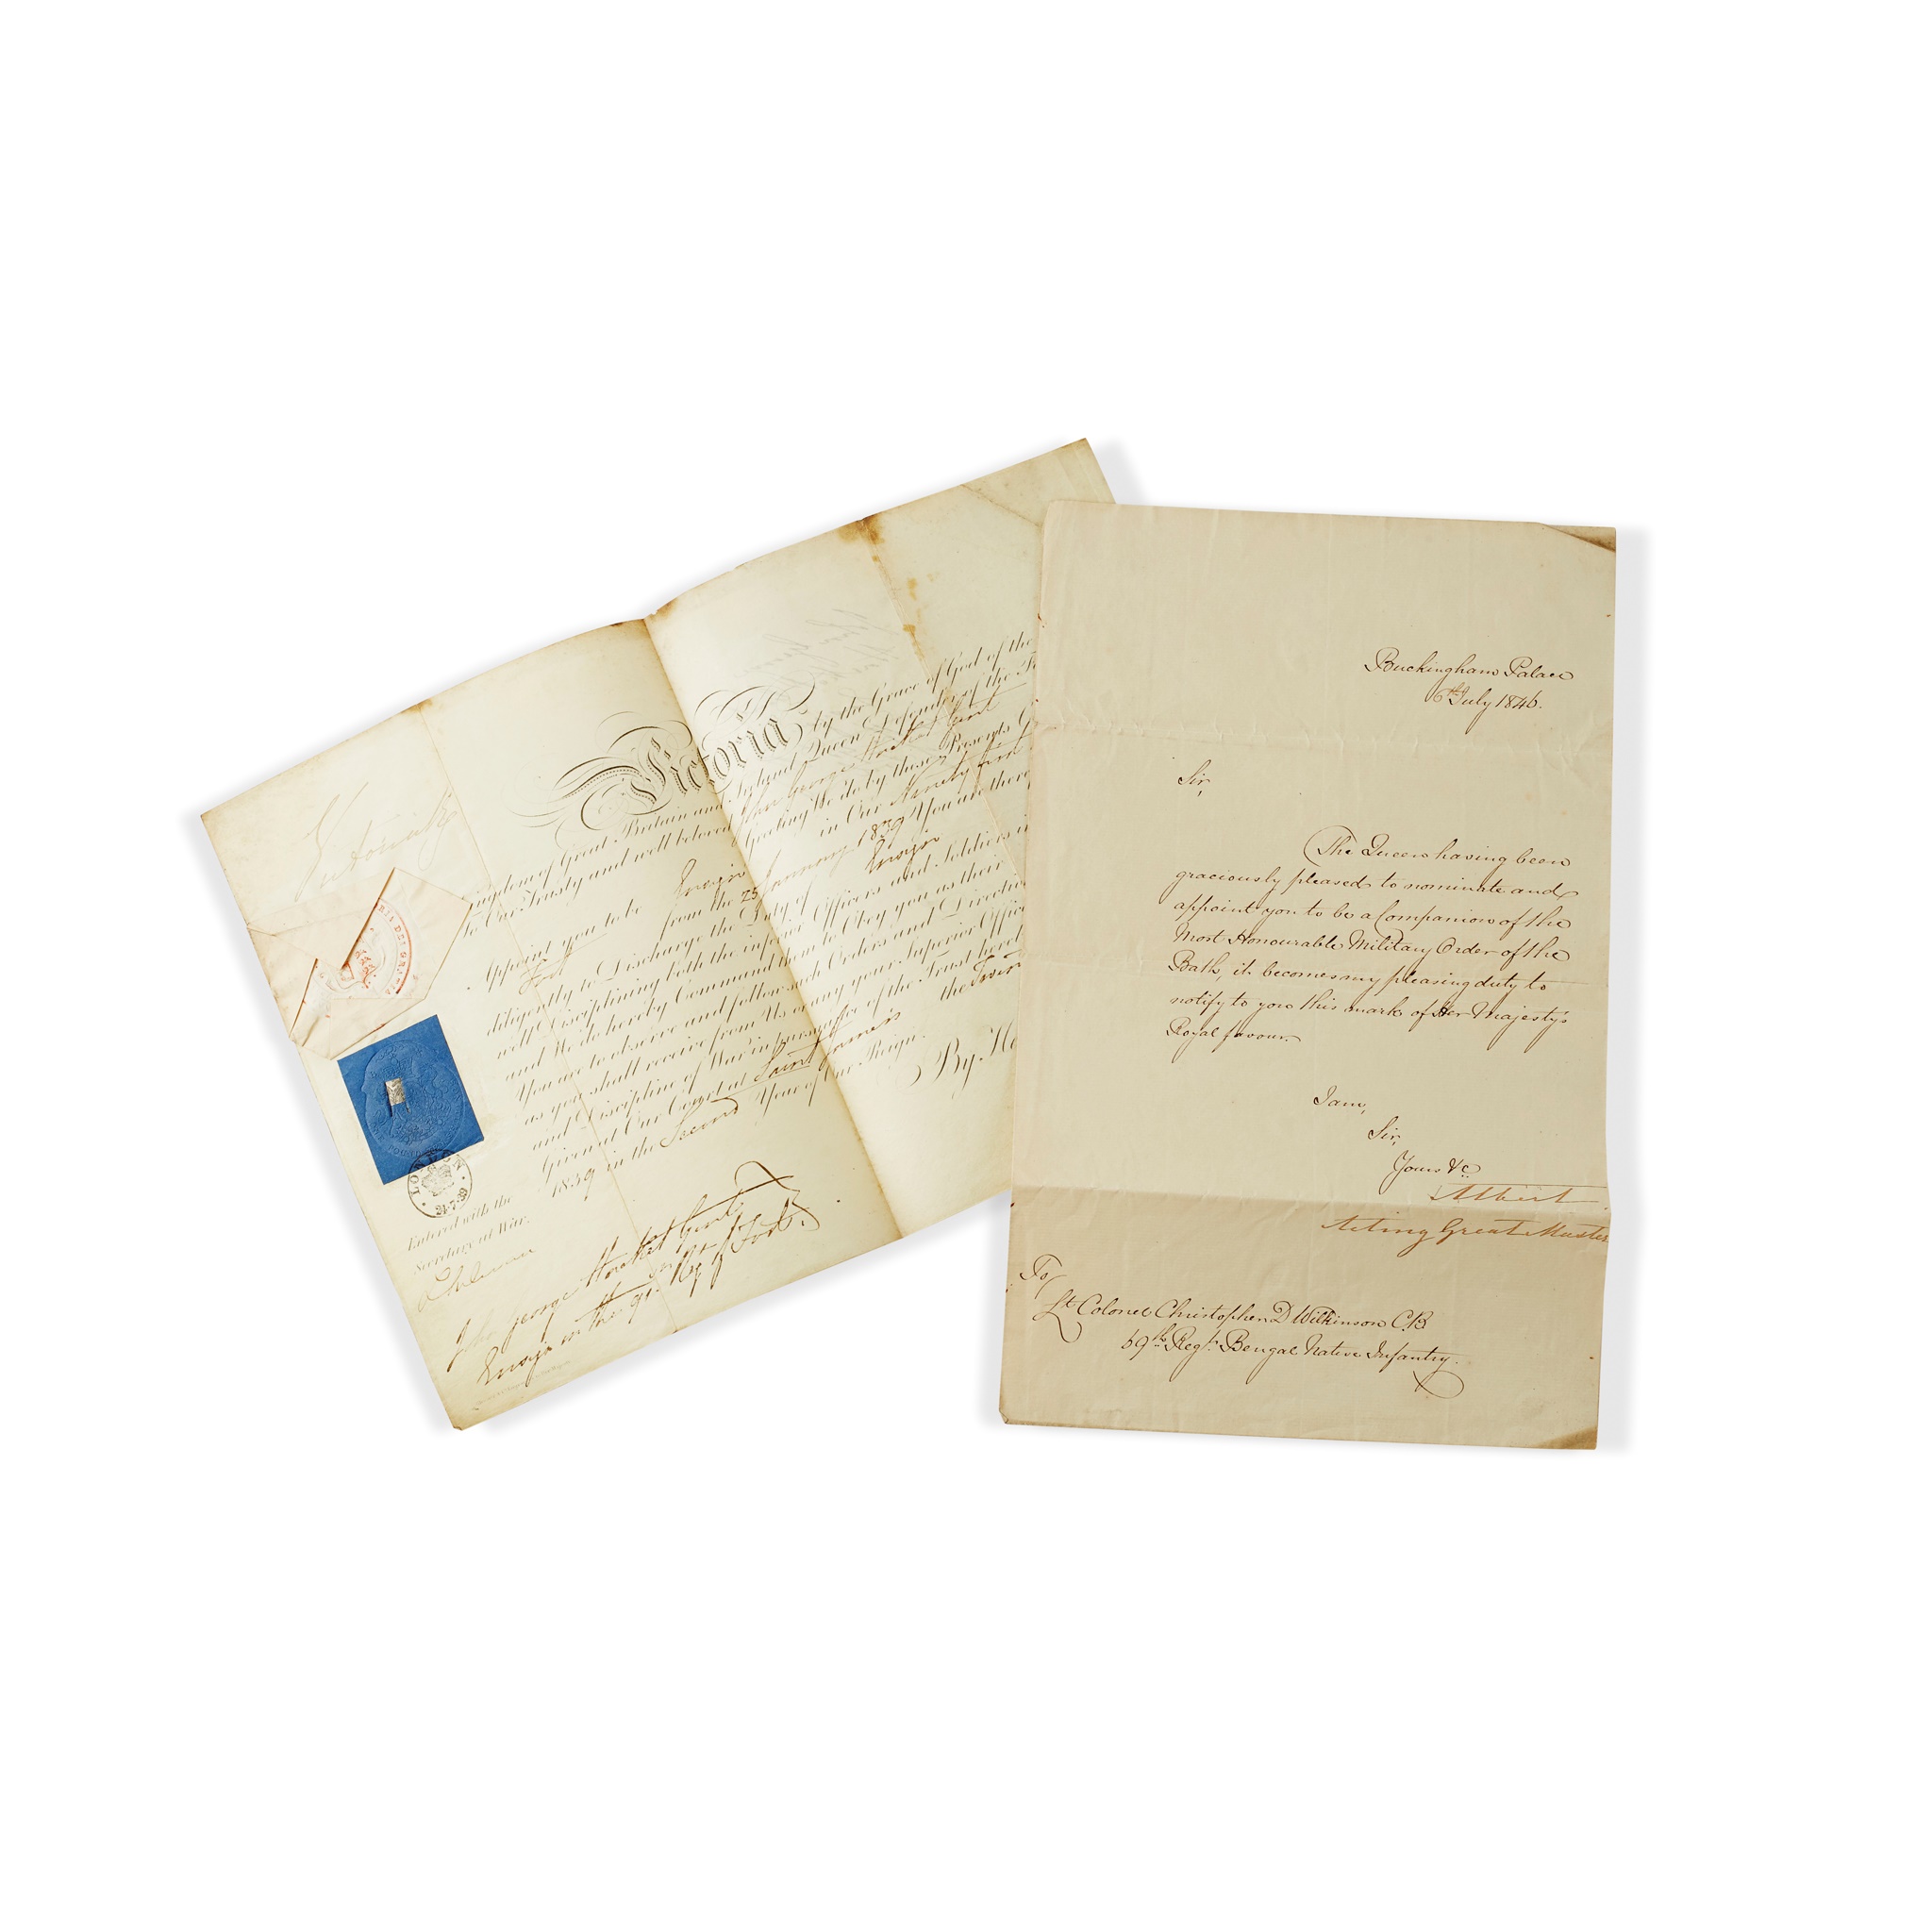 Victoria R
Victoria by the Grace of God of the
Kingdom of Great Britain and Ireland Queen Defender of the
To Our Trusty and well beloved John George Gent
Greeting We do by these Presents
Appoint you to be Ensign in Our Ninety first
Foot from the 25 January 1839 You are there
diligently to Discharge the Duty of Ensign
well Disciplining both the inferior Officers and Soldiers
and We do hereby Command them to Obey you as their
You are to observe and follow such Orders and
as you shall receive from Us or any your Superior
and Discipline of War in pursuance of the Trust
Given at Our Court at Saint James's the
1839 in the Second Year of Our Reign.
By
LONDON
24.7.39
Entered with the
Secretary at War.
John George Gent
Ensign in the 91st Regt of Foot.
Buckingham Palace
6th July 1846.
Sir,
The Queen having been
graciously pleased to nominate and
appoint you to be a Companion of the
Most Honourable Military Order of the
Bath, it becomes my pleasing duty to
notify to you this mark of Her Majesty's
Royal favour.
I am,
Sir,
Yours &c
Albert
Acting Great Master
To
Lt Colonel Christopher D Wilkinson C.B
69th Regt. Bengal Native Infantry.